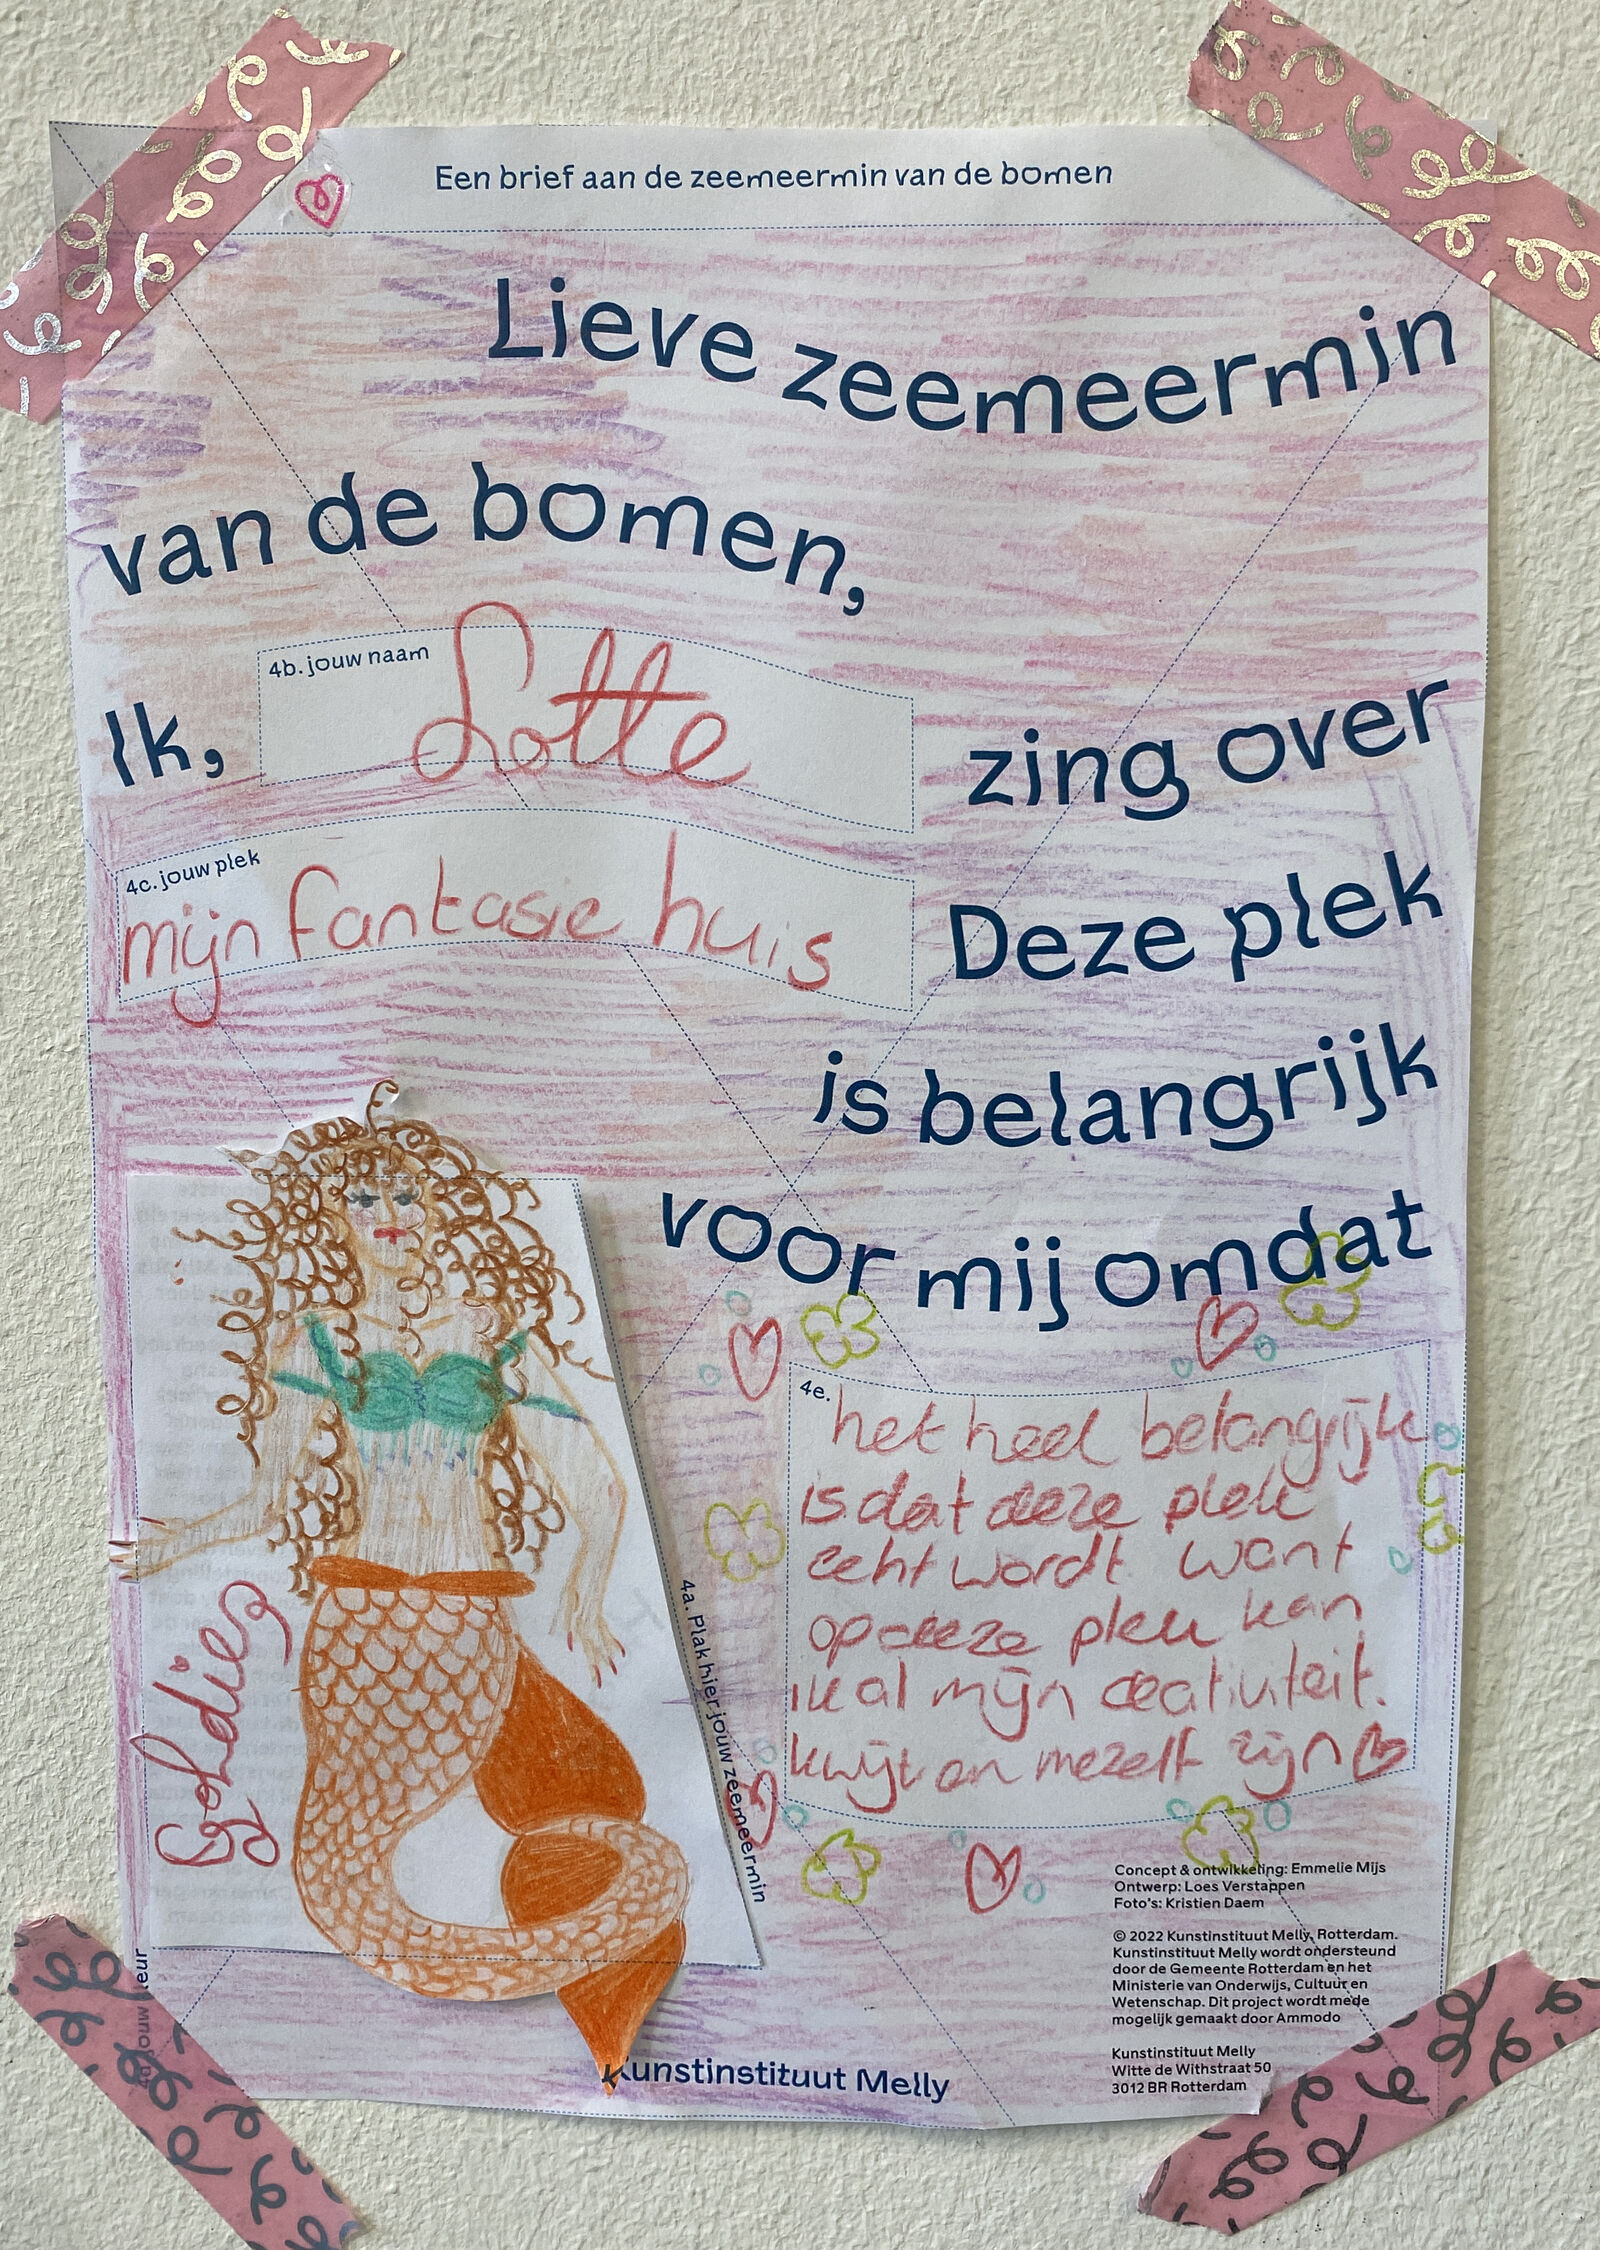 Een brief aan de zeemeermin van de bomen
Lieve zeemeermin
van de bomen,
4b. jouw naam
Ik, Lotte zing over
4c. jouw plek
mijn fantasie huis Deze plek
is belangrijk
voor mij omdat
4e.
het heel belangrijk
is dat deze plek
echt wordt. want
op deze plek kan
ik al mijn creativiteit.
kwijt en mezelf zijn
Goldie
4a. Plak hier jouw zeemeermin
jouw
Concept & ontwikkeling: Emmelie Mijs
Ontwerp: Loes Verstappen
Foto's: Kristien Daem
© 2022 Kunstinstituut Melly, Rotterdam.
Kunstinstituut Melly wordt ondersteund
door de Gemeente Rotterdam en het
Ministerie van Onderwijs, Cultuur en
Wetenschap. Dit project wordt mede
mogelijk gemaakt door Ammodo
Kunstinstituut Melly
Witte de Withstraat 50
3012 BR Rotterdam
Kunstinstituut Melly